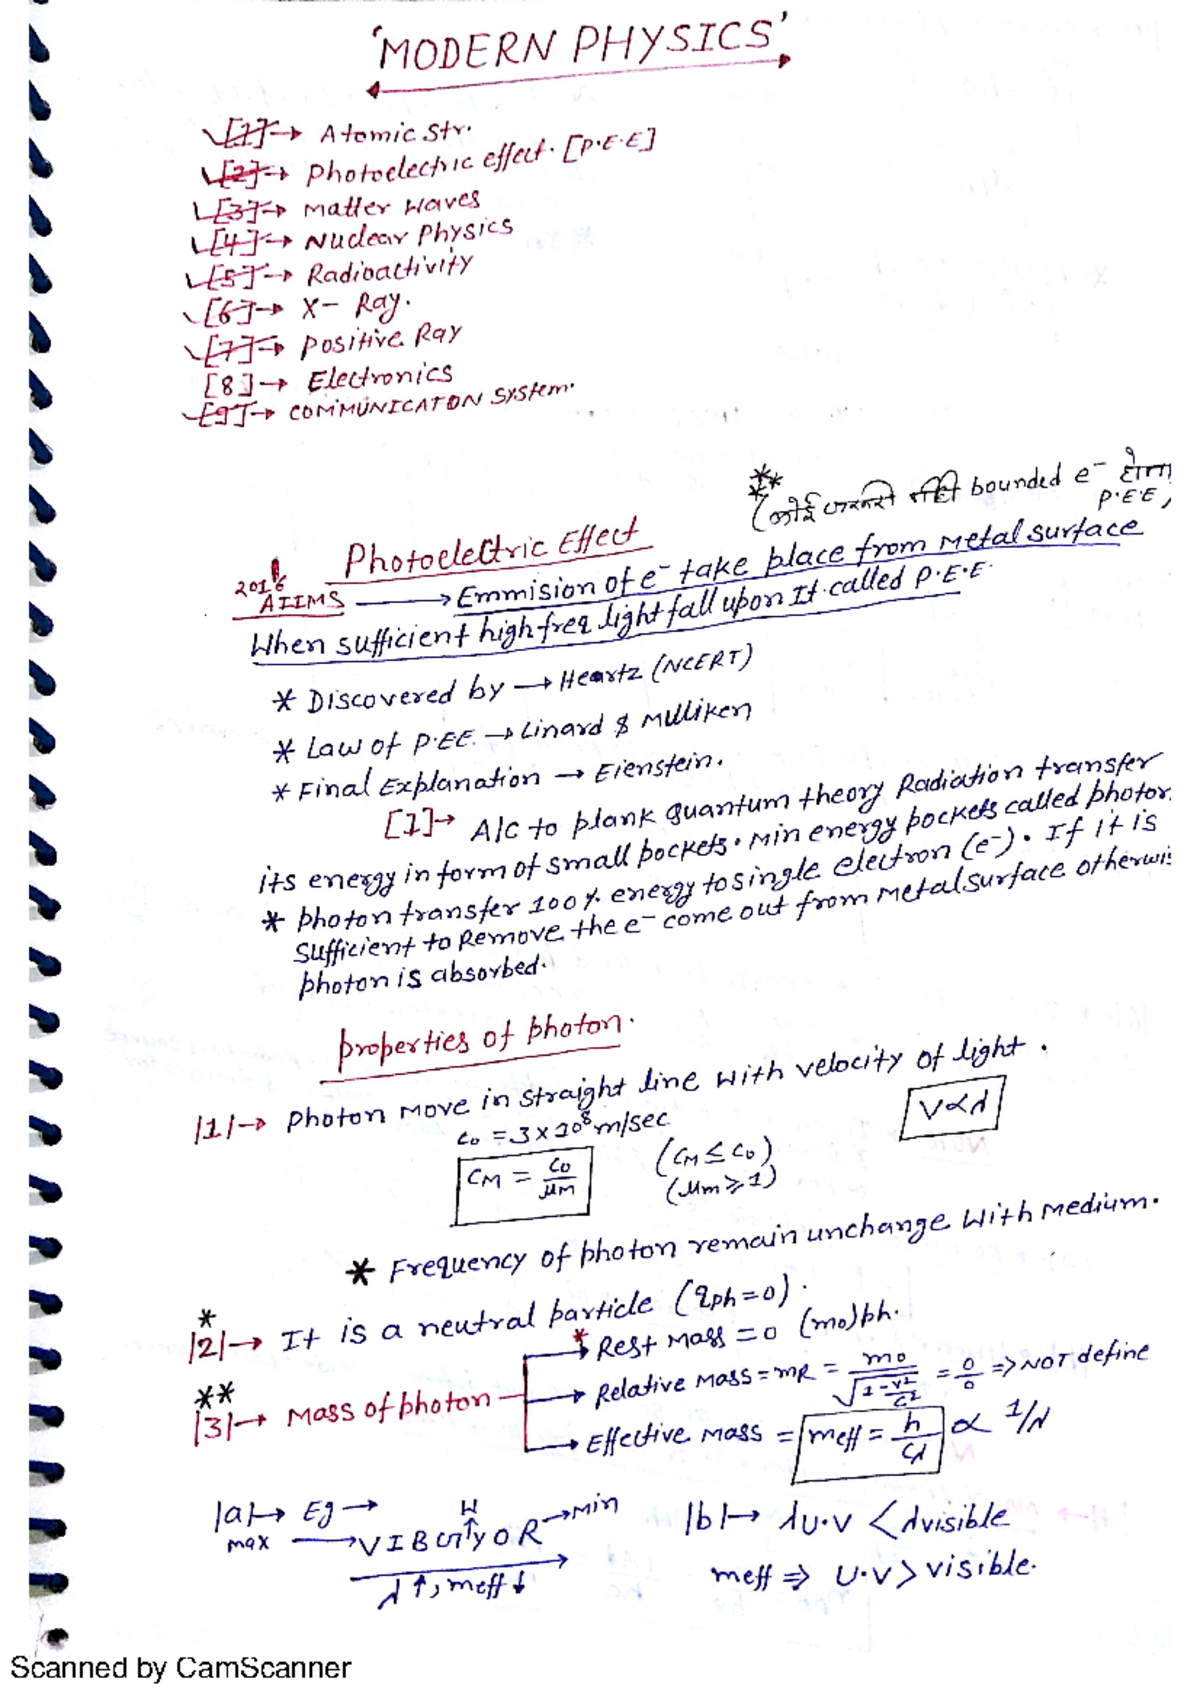 'MODERN PHYSICS'
[1] → Atomic str.
[2] → Photoelectric effect. [P.E.E]
[3] → Matter waves
[4] → Nuclear Physics
[5] → Radioactivity
[6] → X- Ray.
[7] → Positive Ray
[8] → Electronics
[9] → COMMUNICATON SYSTEM.
** (कोई जरूरी नहीं bounded e⁻ होना
P.E.E,
Photoelectric Effect
2016
AIIMS → Emmision of e⁻ take place from Metal surface
When sufficient high freq light fall upon It. called P.E.E.
* Discovered by → Heartz (NCERT)
* Law of P.EE. → Linard & Milliken
* Final Explanation → Eienstein.
[1] → A/C to plank quantum theory Radiation transfer
its energy in form of small pockets. Min energy pockets called photon.
* photon transfer 100% energy to single electron (e⁻). If it is
sufficient to Remove the e⁻ come out from Metal surface otherwi
photon is absorbed.
properties of photon.
|1| → Photon move in straight line with velocity of light.
c₀ = 3 × 10⁸ m/sec
V∝λ
CM = c₀/μM
(CM ≤ C₀)
(μm ≥ 1)
* Frequency of photon remain unchange with medium.
* |2| → It is a neutral particle (qph = 0).
** |3| → Mass of photon
* Rest Mass = 0 (m₀)ph.
→ Relative Mass = mR = m₀/√(1 - v²/c²) = 0/0 ⇒ NOT define
→ Effective mass = meff = h/cλ ∝ 1/λ
|a| → Eg →
max → VIBGYOR → Min
λ ↑, meff ↓
|b| → λU.V < λvisible
meff ⇒ U.V > visible.
Scanned by CamScanner